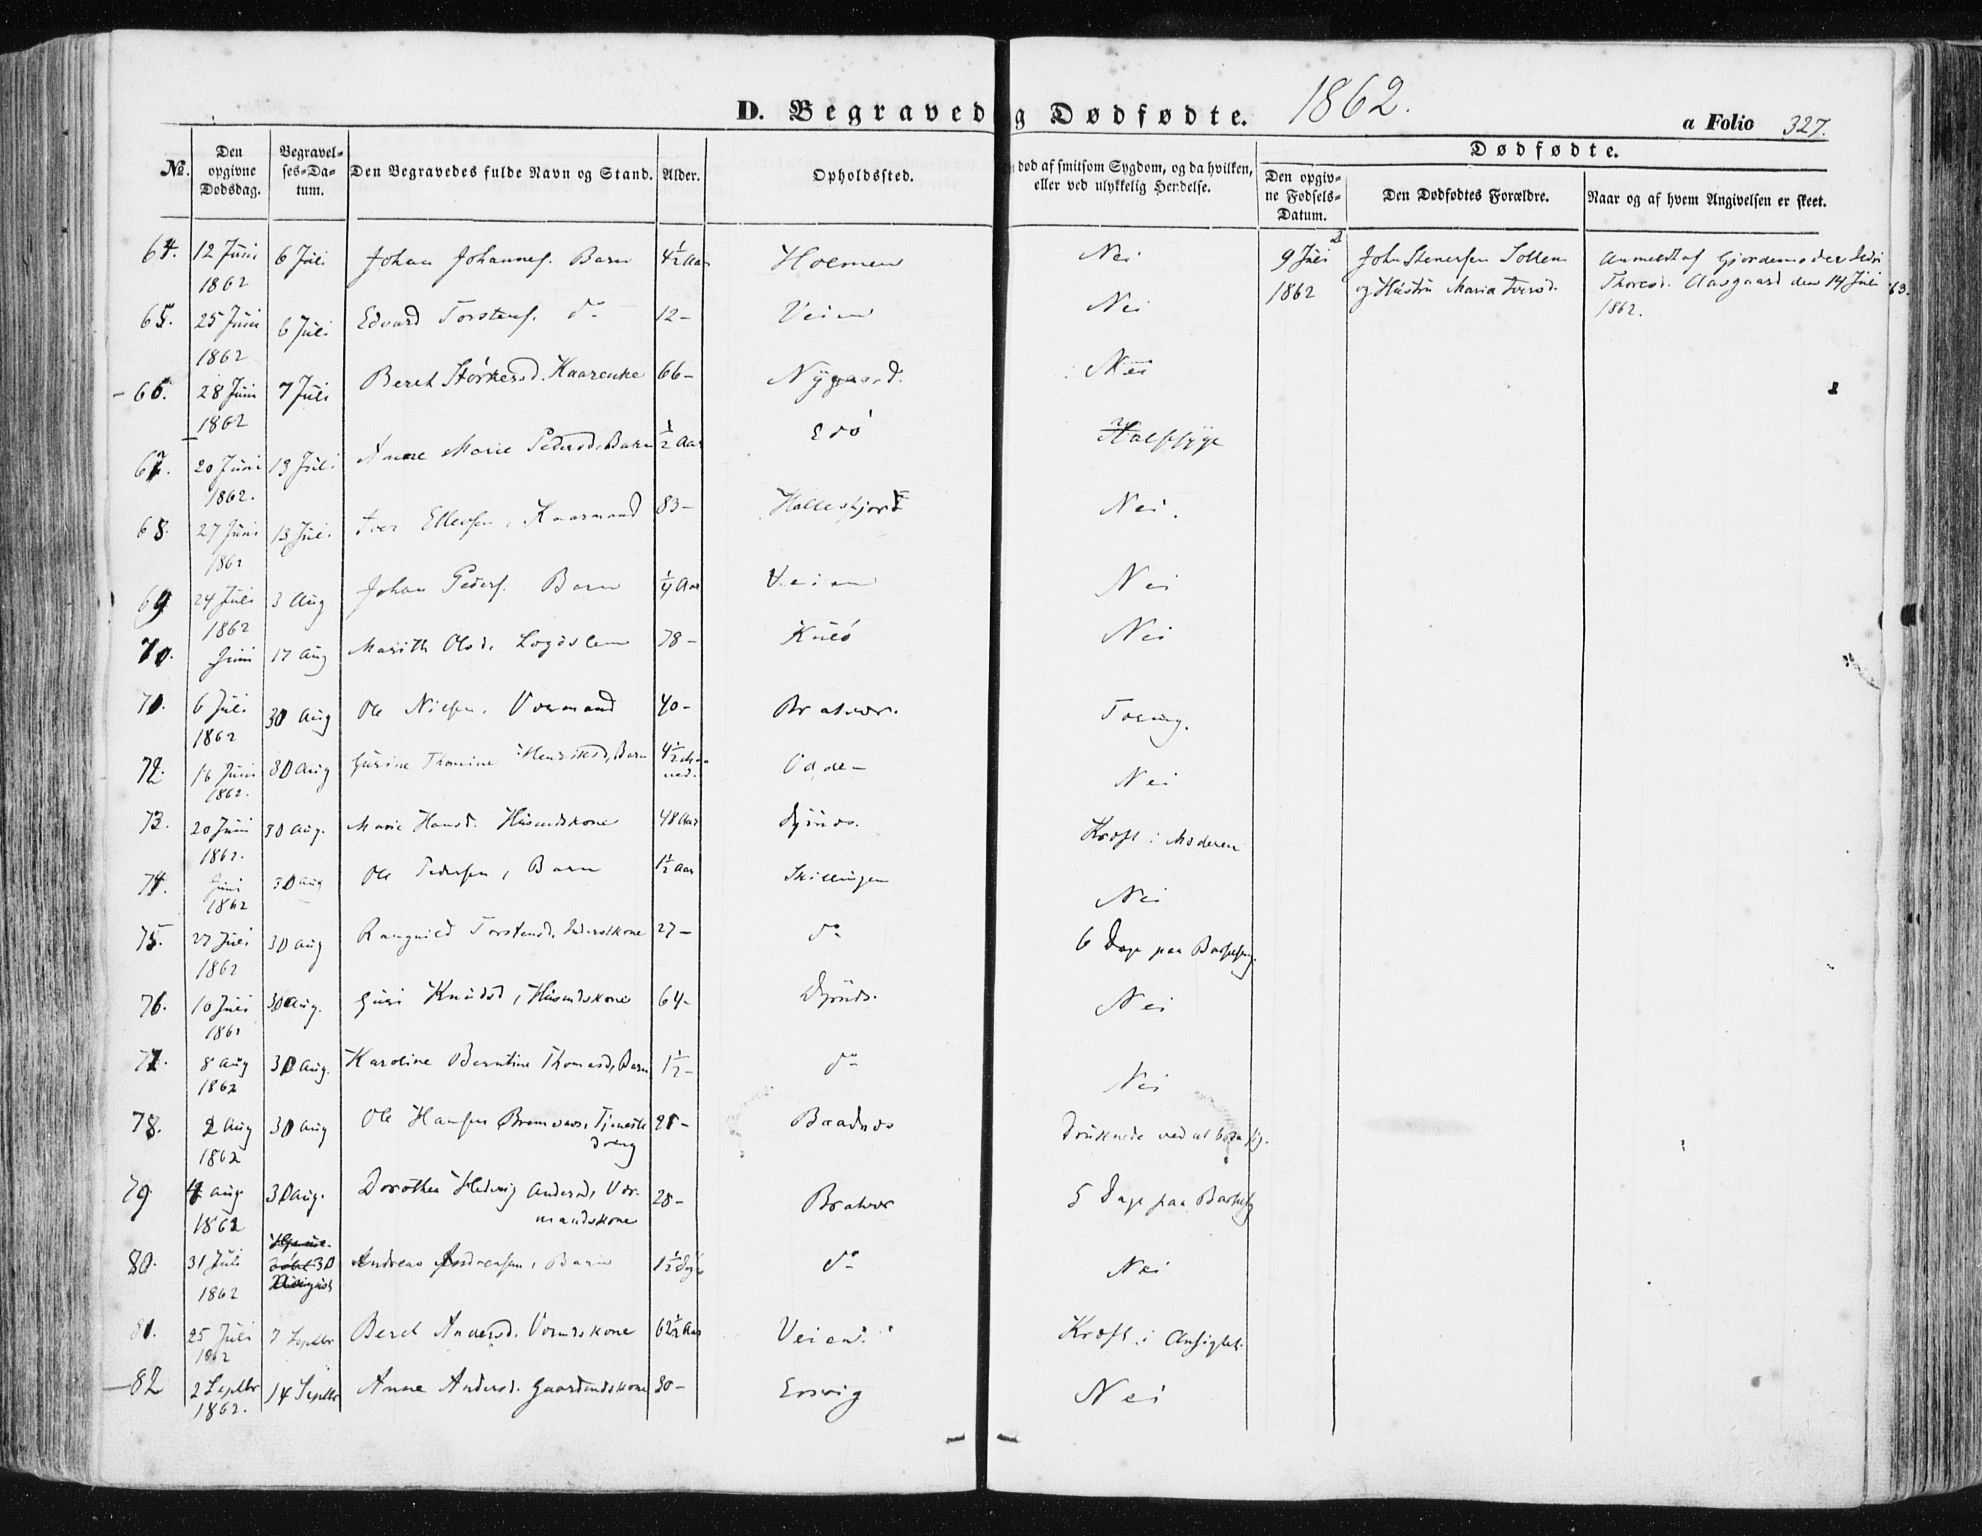 D. Begraved
g Dødfødte. 1862.
a Folio 327.
No. Den opgivne Dødsdag. Begravelses-Datum. Den Begravedes fulde Navn og Stand. Alder. Opholdssted. død af smitsom Sygdom, og da hvilken, eller ved ulykkelig Hendelse.
Dødfødte.
Den opgivne Fødsels-Datum. Den Dødfødtes Forældre. Naar og af hvem Angivelsen er skeet.
64. 12 Juni 1862 6 Juli Johan Johannes. Barn 4½ Aar Holmen Nei
9 Juli 1862 John Stenersen og Hustru Maria Iversd. Anmeldt af Gjordemoder Thoresd. Aasgaard den 14 Juli 1862. 63.
65. 25 Juni 1862 6 Juli Edvard Torstens. do 12 – Veien Nei
66. 28 Juni 1862 7 Juli Beret Størkersd. Kaarenke 66 – Nygaard. Nei
67. 20 Juni 1862. 13 Juli Anne Marie Pedersd, Barn ½ Aar Edø Halssyge
68. 27 Juni 1862 13 Juli Iver Ellevsen, Kaarmand 83 – Nei.
69 24 Juli 1862 3 Aug Johan Peders. Barn ¼ Aar Veien Nei
70. Juni 17 Aug Marith Olsd. Logdslem 78 – Kulø Nei
71. 6 Juli 1862 30 Aug Ole Nilsen. Vormand 40 – Bratvær. Tæring.
72. 16 Juni 1862. 30 Aug Gurine Thomine Henriksd, Barn 4½ Maaned. Odden Nei
73. 20 Juni 1862. 30 Aug. Marie Hansd. Husmdskone 48 Aar Kræft i Moderen
74. Juni 1862 30 Aug Ole Pedersen, Barn 1½ Aar Skillingen Nei
75. 27 Juli 1862 30 Aug Rangnild Torstensd. Inderstkone 27 – do 6 Dage paa Barselseng.
76. 10 Juli 1862 30 Aug. Guri Knudsd, Husmdskone 64 – Nei
77. 8 Aug 1862 30 Aug. Karoline Berntine Thomasd, Barn 1½ – do Nei
78. 2 Aug 1862 30 Aug Ole Hansen Bremsnes, Tjenestedreng 21 – Druknede ved at bade sig.
79. 4 Aug 1862 30 Aug. Dorothea Hedevig Andersd, Vormandskone 28 – Bratvær 5 Dage paa Barselsg
80. 31 Juli 1862 30 Andreas Andreasen, Barn 1½ Døgn do Nei
81. 25 Juli 1862 7 Septbr Beret Andersd. Vormdskone 62½ Aar Veien. Kræft i Ansigtet.
82 2 Septbr 1862. 14 Septbr Anne Andersd. Gaardmdskone 30 – Ervig Nei